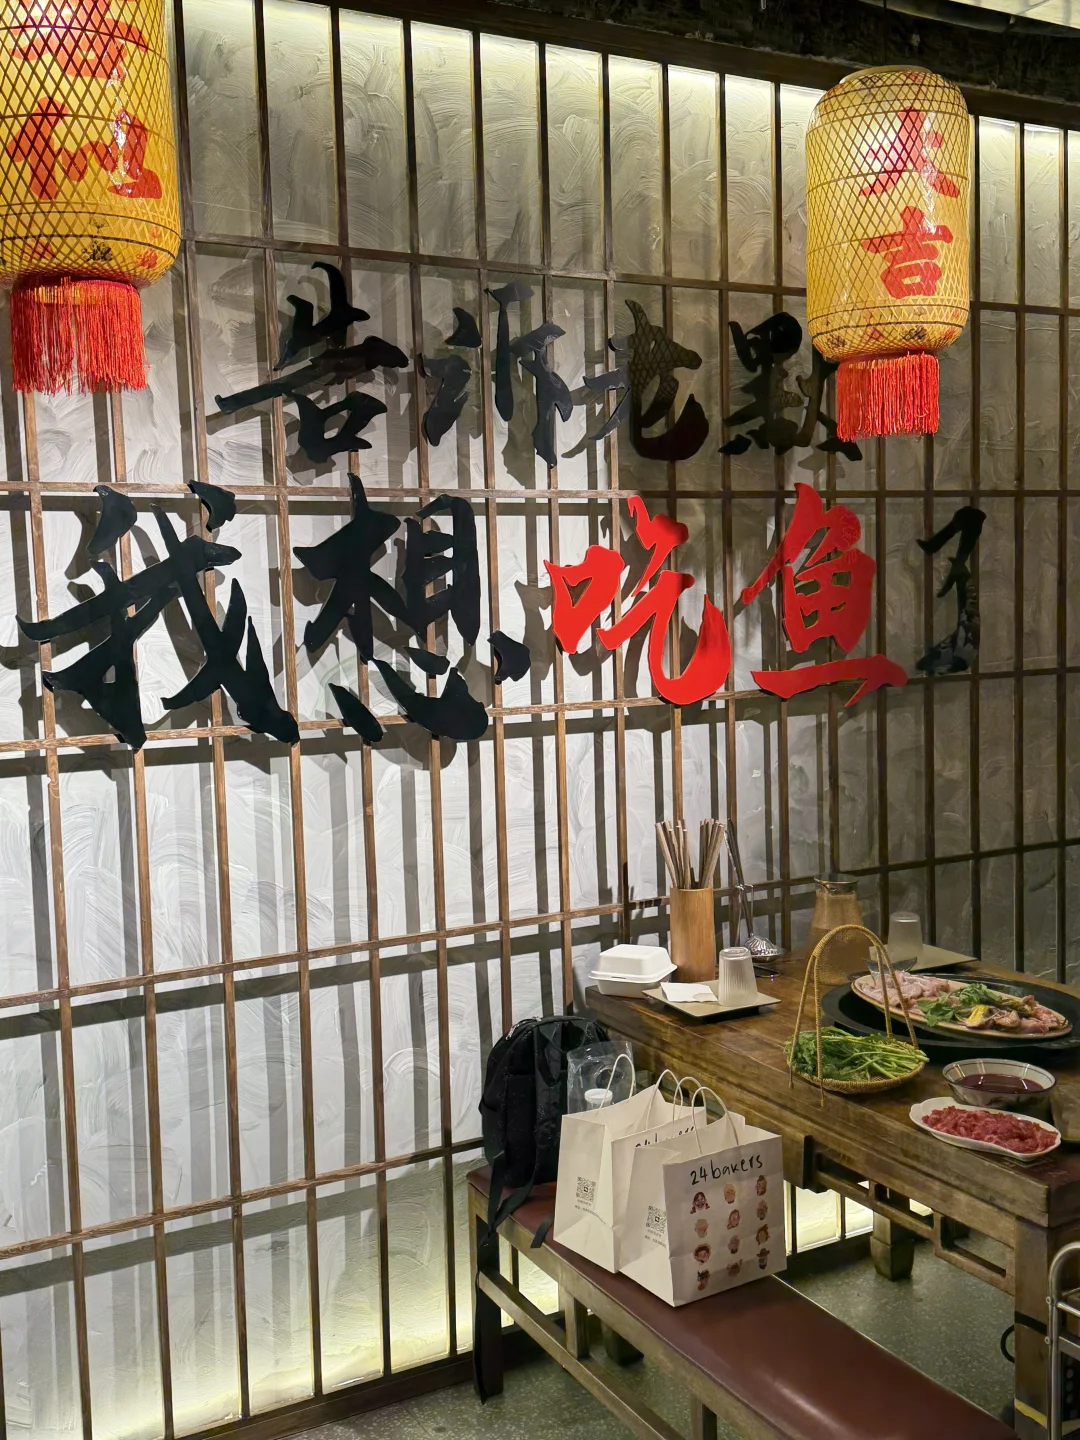 大吉
告诉點
我想吃鱼了
24 bakers